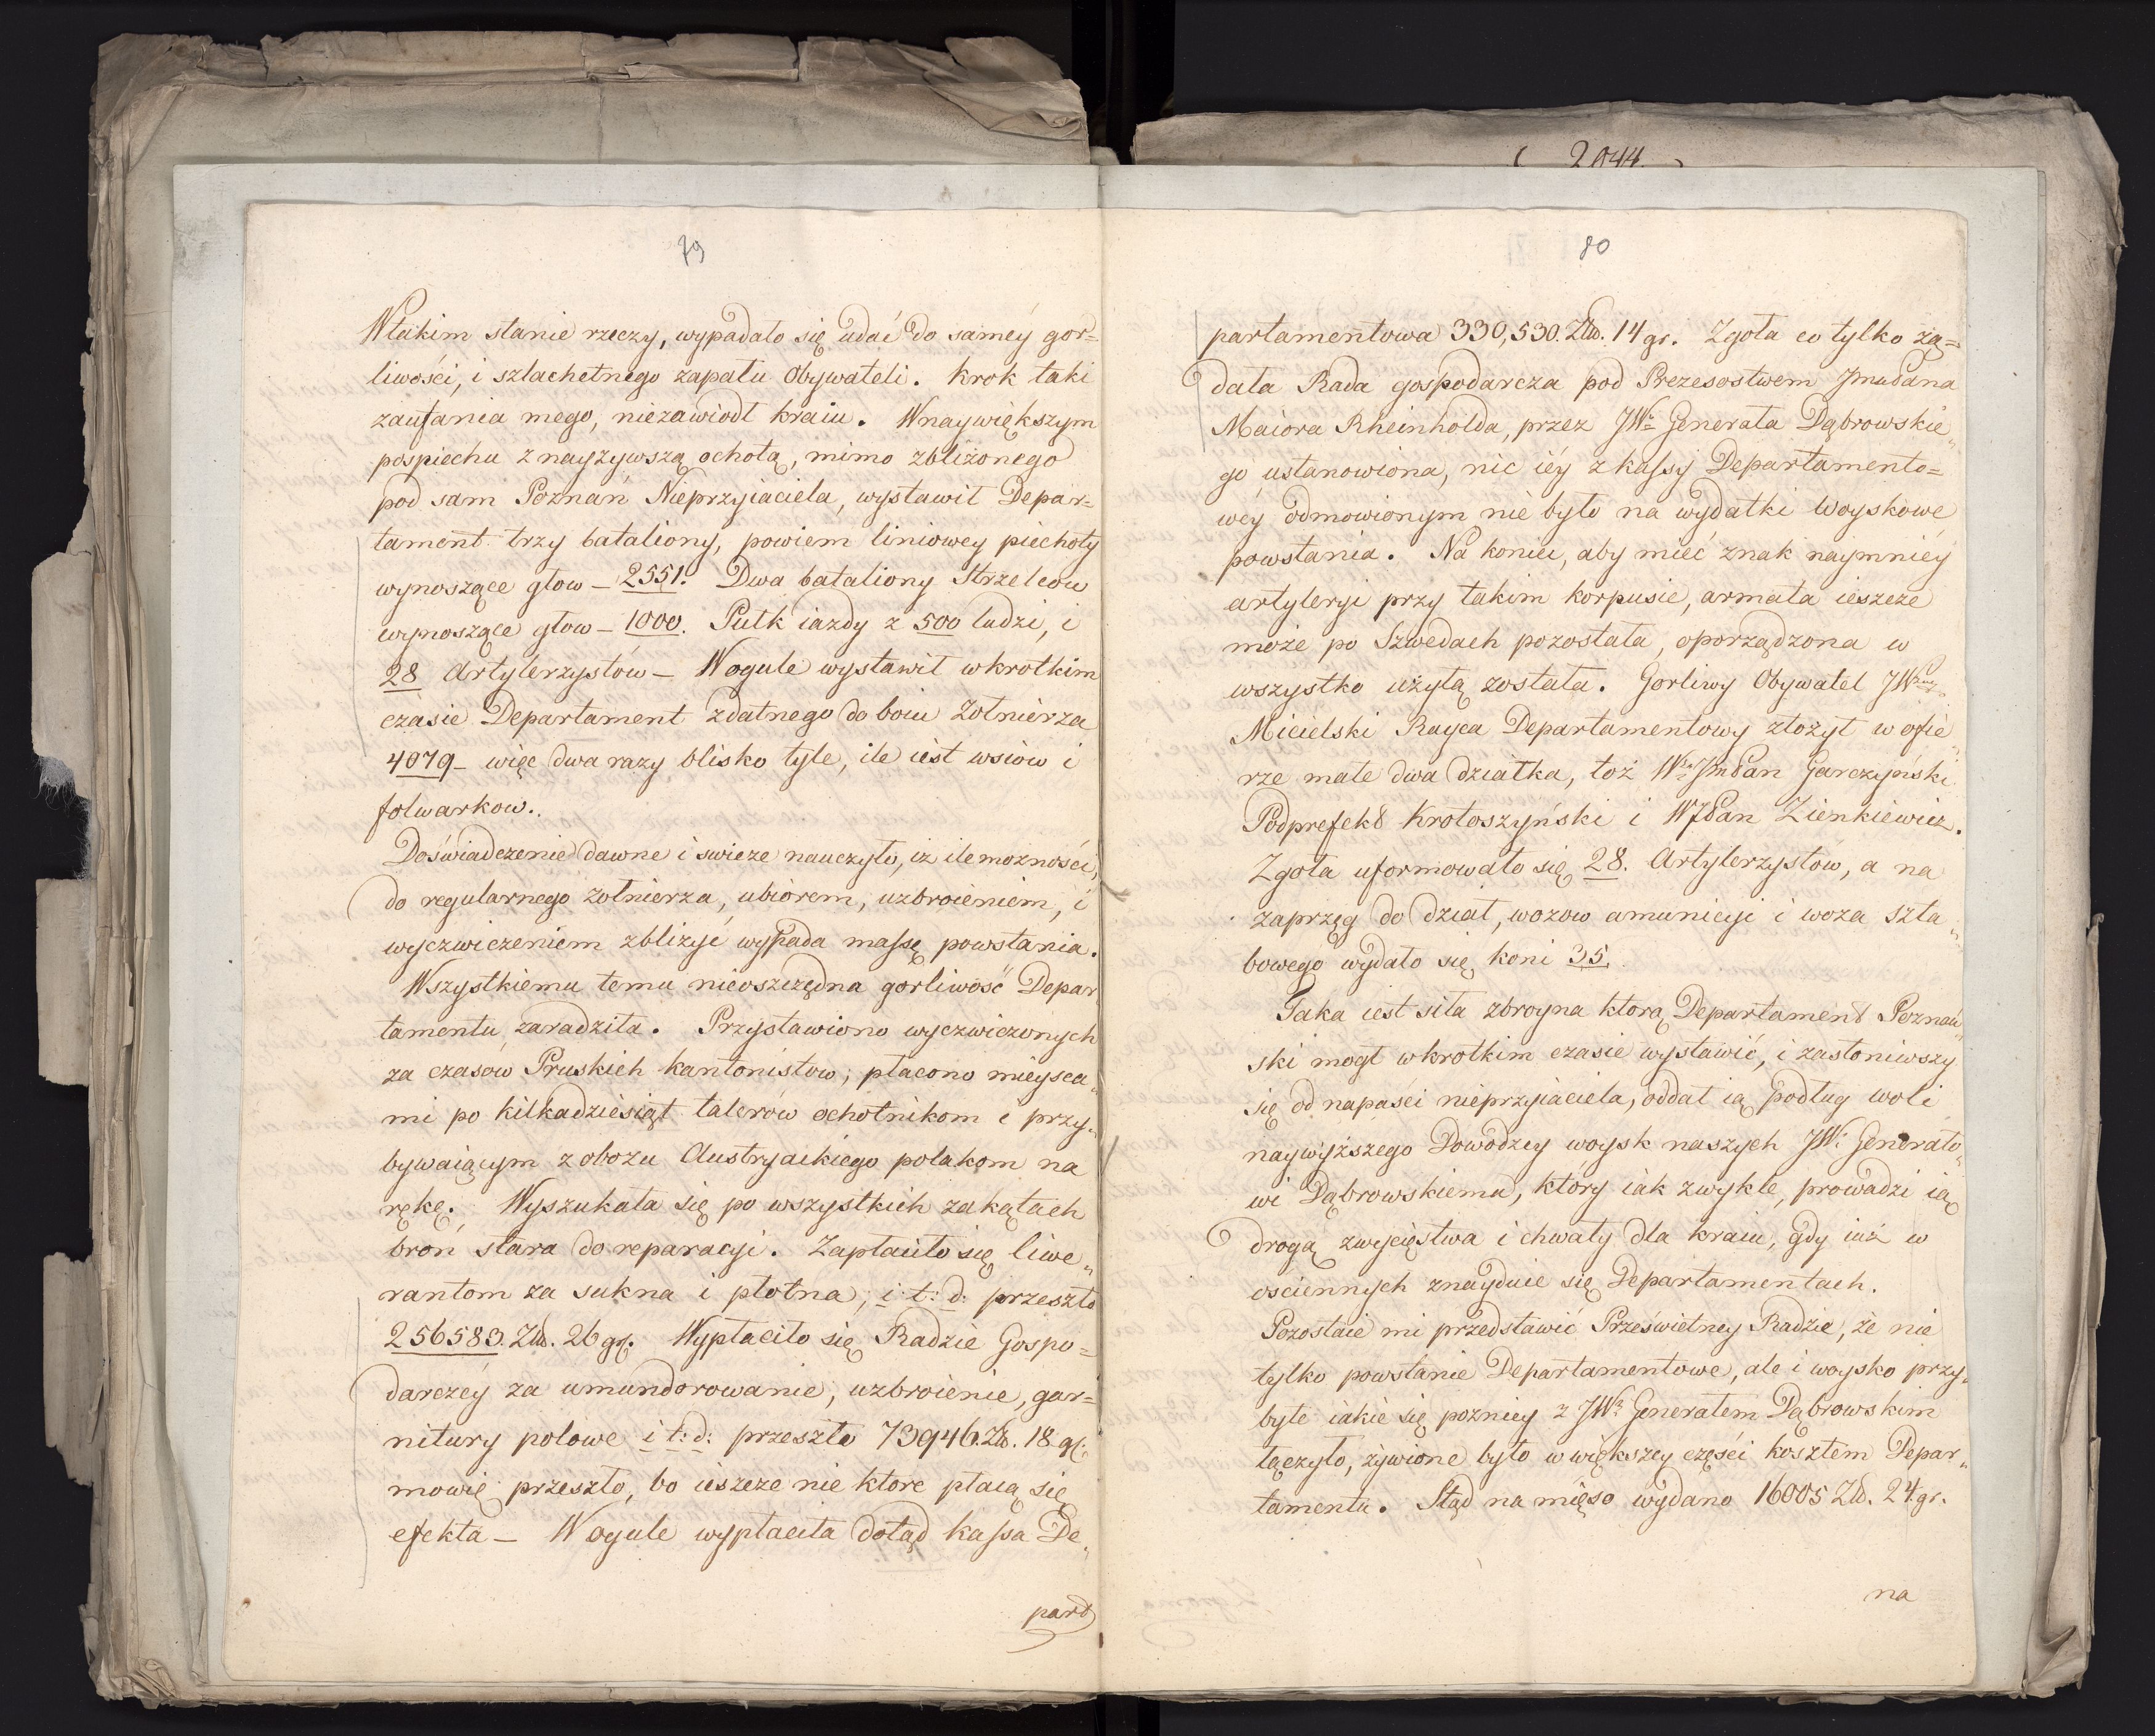 79
Wtakim stanie rzeczy, wypadało się udać do saméy gor=
liwości, i szlachetnego zapału Obywateli. Krok taki
zaufania mego, niezawiodł kraiu. Wnaywiększym
pospiechu z nayżywszą ochotą, mimo zbliżonego
pod sam Poznań Nieprzyiaciela, wystawił Depar=
tament trzy bataliony, powiem liniowey piechoty
wynoszące głow – 2551. Dwa bataliony Strzelcow
wynoszące głow – 1000. Pułk iazdy z 500 ludzi, i
28 Artylerzystów – Wogule wystawił wkrotkim
czasie Departament zdatnego do boiu żołnierza
4079 – więc dwa razy blisko tyle, ile iest wsiów i
folwarkow.
Doświadczenie dawne i swieże nauczyło, iż ile możności,
do regularnego żołnierza, ubiorem, uzbroieniem, i
wyczwiczeniem zbliżyć wypada massę powstania.
Wszystkiemu temu nieoszczędna gorliwość Depar
tamentu zaradziła. Przystawiono wyczwiczonych
za czasów Pruskich kantonistow; płacono mieysca„
mi po kilkadziesiąt talerów ochotnikom i przy„
bywaiącym z obozu Austryackiego polakom na
rękę. Wyszukała się po wszystkich zakątach
broń stara do reparacyi. Zapłaciło się liwe„
rantom za sukna i płotna, i: t: d: przeszło
256583. Złł. 26 gr. Wypłaciło się Radzie Gospo=
darczéy za umundorowanie, uzbroienie, gar=
nitury polowe i t: d: przeszło 73946. Zł. 18 gr:
mowię przeszło, bo ieszcze nie ktore płacą się
efekta – Wogule wypłaciła dotąd kassa De„
part
2044.
80
partamentowa 330,530. Złł. 14 gr. Zgoła co tylko żą=
dała Rada gospodarcza pod Prezesostwem Jmć Pana
Maiora Rheinholda, przez JW. Generała Dąbrowskie„
go ustanowiona, nic iéy z kassy Departamento=
wéy odmowionym nie było na wydatki woyskowe
powstania. Na koniec, aby mieć znak naymniéy
artyleryi przy takim korpusie, armata ieszcze
może po Szwedach pozostała, oporządzona w
wszystko użytą została. Gorliwy Obywatel JW
Micielski Rayca Departamentowy złożył w ofie„
rze małe dwa działka, toż W. Jm Pan Garczyński
Podprefekt Krotoszyński i WJPan Zienkiewicz.
Zgoła uformowało się 28. Artylerzystów, a na
zaprzęg do dział, wozow amunicyi i woza szta„
bowego wydało się koni 35.
Taka iest siła zbroyna ktorą Departament Poznań„
ski mogł wkrotkim czasie wystawić, i zasłoniwszy
się od napaści nieprzyiaciela, oddał ią podług woli
naywyższego Dowodzcy woysk naszych JW. Generało„
wi Dąbrowskiemu, który iak zwykle, prowadzi ią
drogą zwycięstwa i chwały dla kraiu, gdy iuż w
osciennych znayduie się Departamentach.
Pozostaie mi przedstawić Prześwietney Radzie, że nie
tylko powstanie Departamentowe, ale i woysko przy„
byłe iakie się pozniey z JW. Generałem Dąbrowskim
łączyło, żywione było w większey części kosztem Depar„
tamentu. Stąd na mięso wydano 16005 Złł. 24 gr.
na